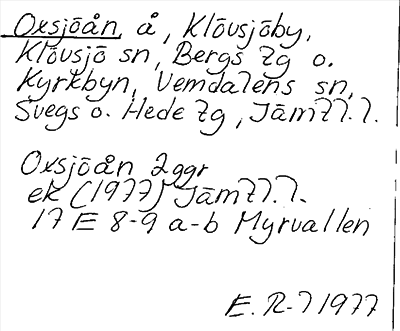 Oxsjöån å, Klövsjöby,
Klövsjö sn, Bergs tg o.
Kyrkbyn, Vemdalens sn,
Svegs o. Hede tg, Jämtl.l.
Oxsjöån 2ggr
ek (1977) Jämtl.l.
17 E 8-9 a-b Myrvallen
E. R-7 1977